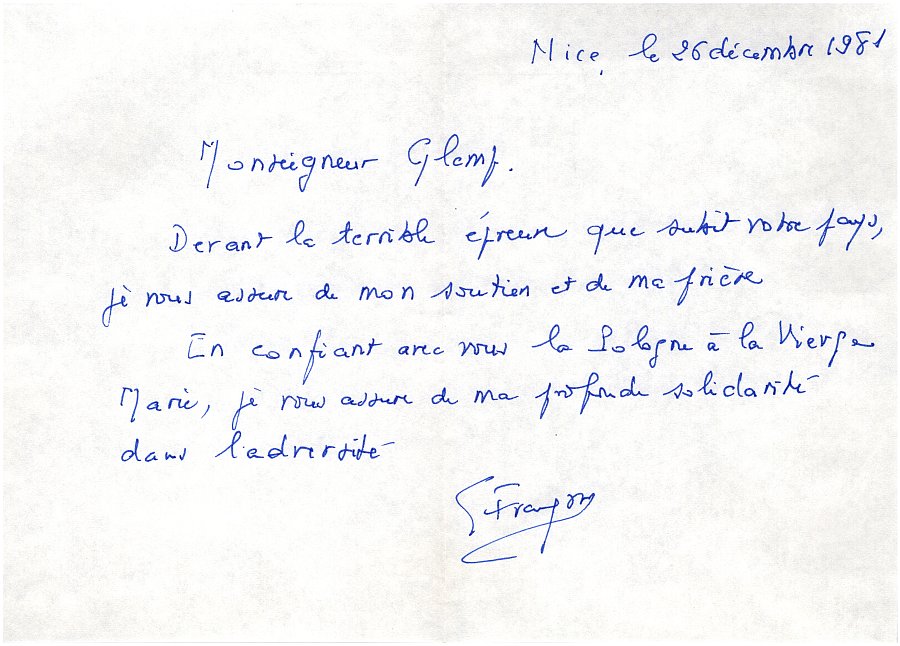 Nice, le 26 décembre 1981
Monseigneur Glemp.
Devant la terrible épreuve que subit votre pays,
je vous assure de mon soutien et de ma prière
En confiant avec vous la Pologne à la Vierge
Marie, je vous assure de ma profonde solidarité
dans l'adversité